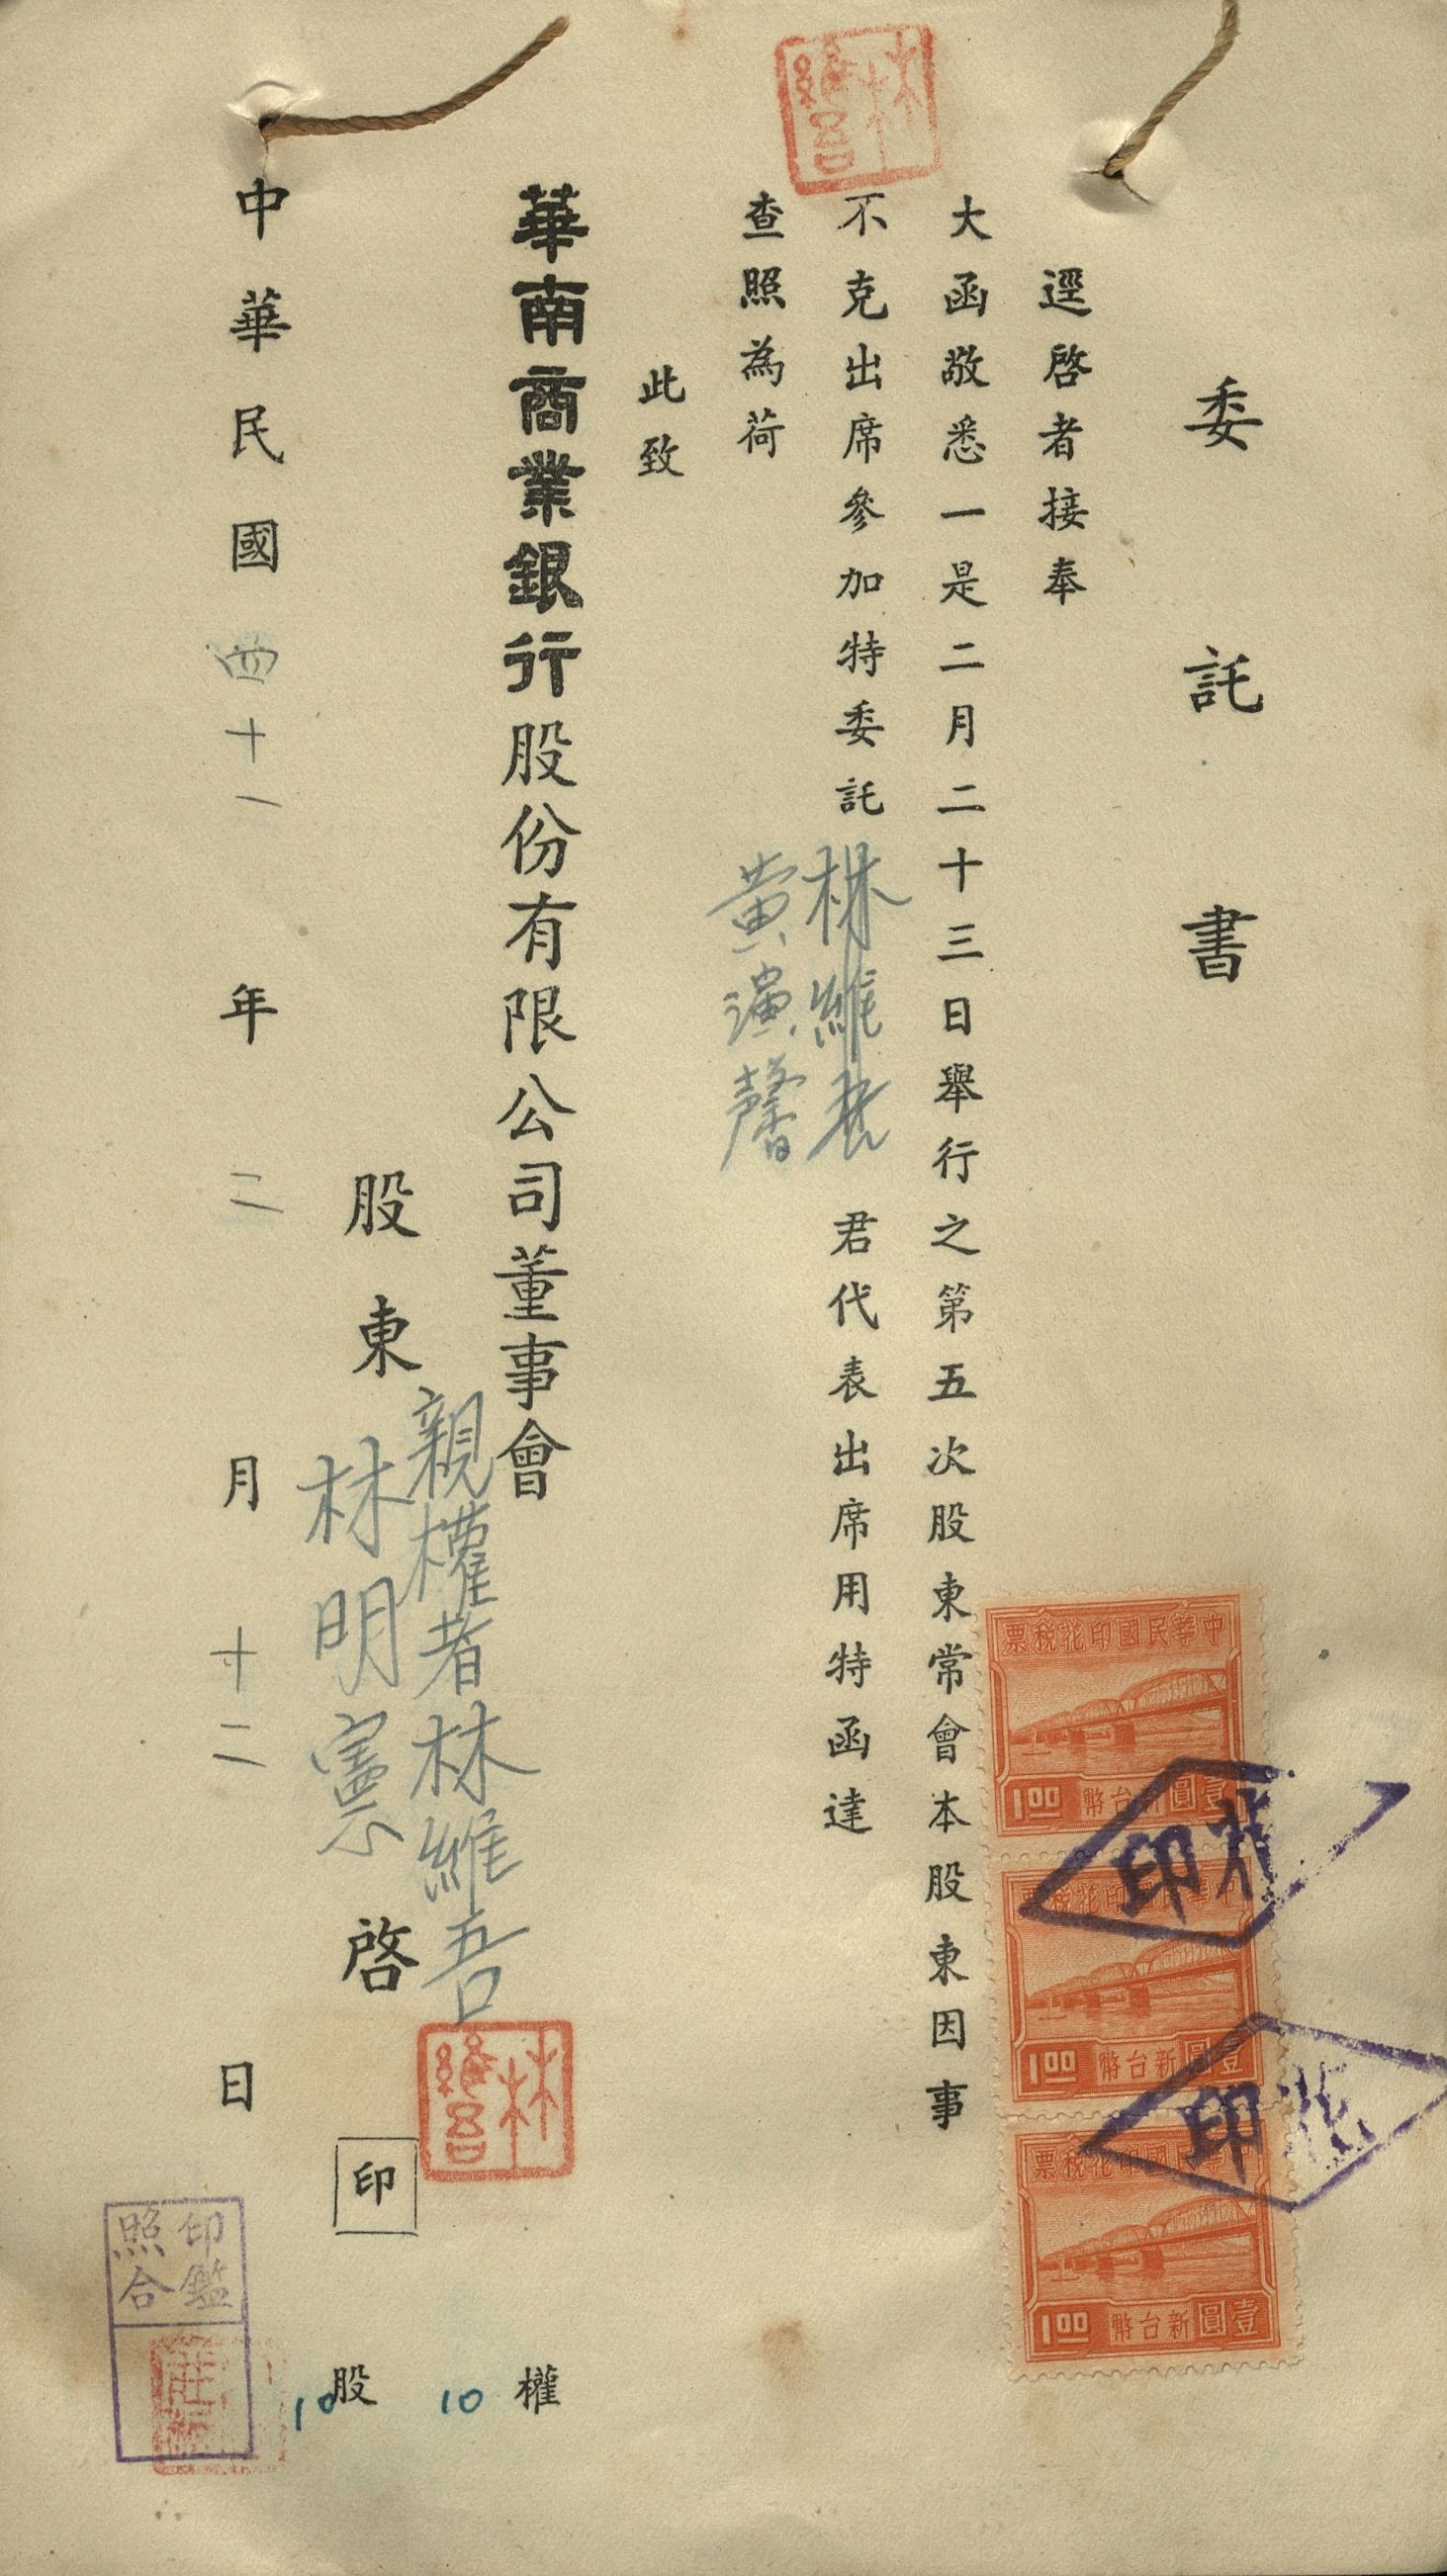 委託書
逕啓者接奉
大函敬悉一是二月二十三日舉行之第五次股東常會本股東因事
不克出席參加特委託 林維 君代表出席用特函達
黃演馨
查照為荷
此致
華南商業銀行股份有限公司董事會
親權者林維吾
股東 林明憲 啓 印
權 10
股 10
中華民國 四十一 年 二 月 十二 日
林維吾
林維吾
印鑑照合
中華民國印花稅票
1.00 壹圓新台幣
中華民國印花稅票
1.00 壹圓新台幣
中華民國印花稅票
1.00 壹圓新台幣
印
印